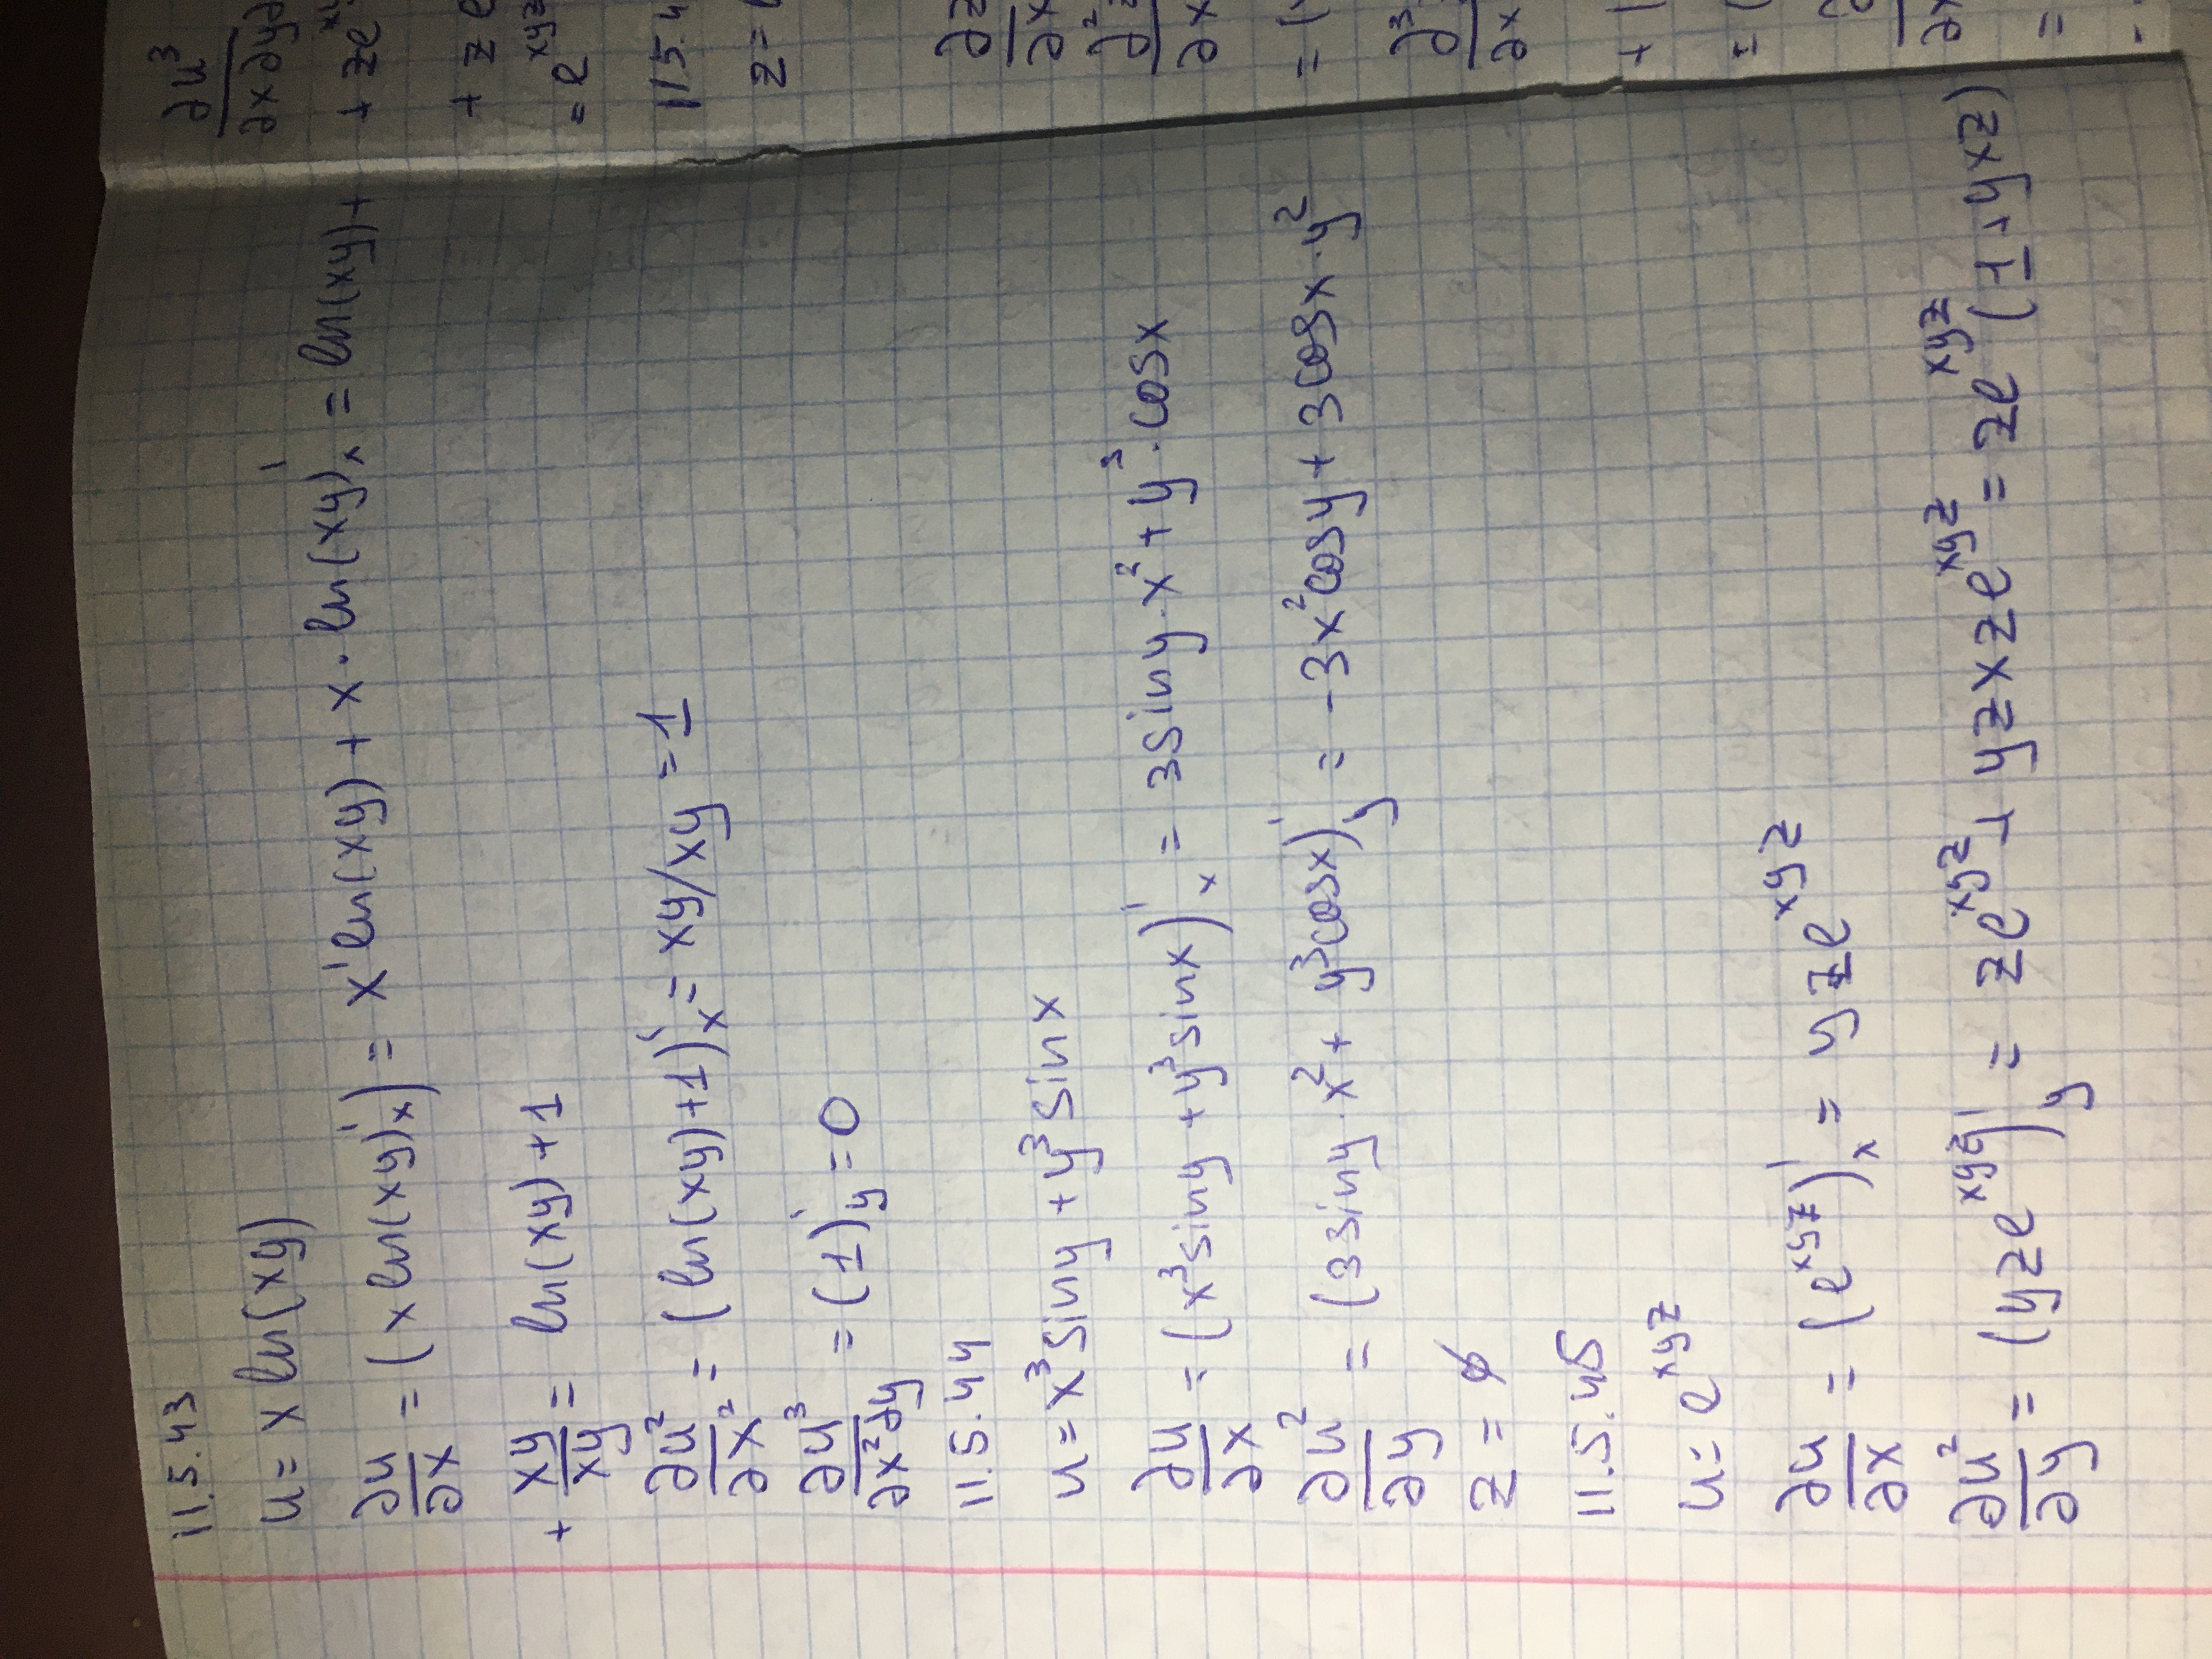 11.5.43
u = x ln(xy)
∂u/∂x = (x ln(xy)'ₓ) = x' ln(xy) + x · ln(xy)'ₓ = ln(xy) +
+ xy/xy = ln(xy) + 1
∂u²/∂x² = (ln(xy) + 1)'ₓ = xy/xy = 1
∂u³/∂x²∂y = (1)'_y = 0
11.5.44
u = x³ sin y + y³ sin x
∂u/∂x = (x³ sin y + y³ sin x)'ₓ = 3 sin y · x² + y³ · cos x
∂u²/∂y = (3 sin y · x² + y³ cos x)'_y = -3x² cos y + 3 cos x · y²
z = ∅
11.5.45
u = e^xyz
∂u/∂x = (e^xyz)'ₓ = yze^xyz
∂u²/∂y = (yze^xyz)'_y = ze^xyz + yzxze^xyz = ze^xyz (1 + yxz)
∂u³
∂x∂y∂
+ ze^xy
+ ze
= e^xyz
11.5.4
z =
∂z
∂x
∂²
∂x
= (
∂³
∂x
+
= (
∂x
=